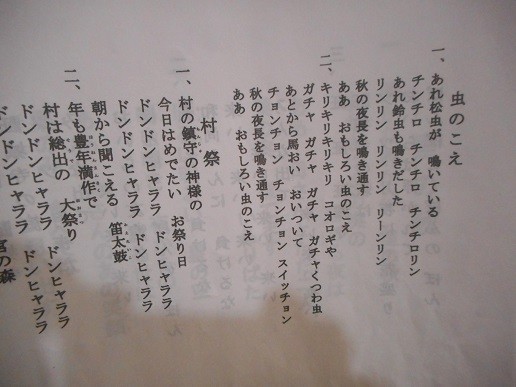 虫のこえ
一、あれ松虫が 鳴いている
チンチロ チンチロ チンチロリン
あれ鈴虫も鳴きだした
リンリン リンリン リーンリン
秋の夜長を鳴き通す
ああ おもしろい虫のこえ
二、キリキリキリキリ コオロギや
ガチャ ガチャ ガチャ ガチャくつわ虫
あとから馬おい おいついて
チョンチョン チョンチョン スイッチョン
秋の夜長を鳴き通す
ああ おもしろい虫のこえ
村祭
一、村の鎮守の神様の
今日はめでたい お祭り日
ドンドンヒャララ ドンヒャララ
ドンドンヒャララ ドンヒャララ
朝から聞こえる 笛太鼓
二、年も豊年満作で
村は総出の 大祭り
ドンドンヒャララ ドンヒャララ
ドンドンヒャララ ドンヒャララ
宮の森